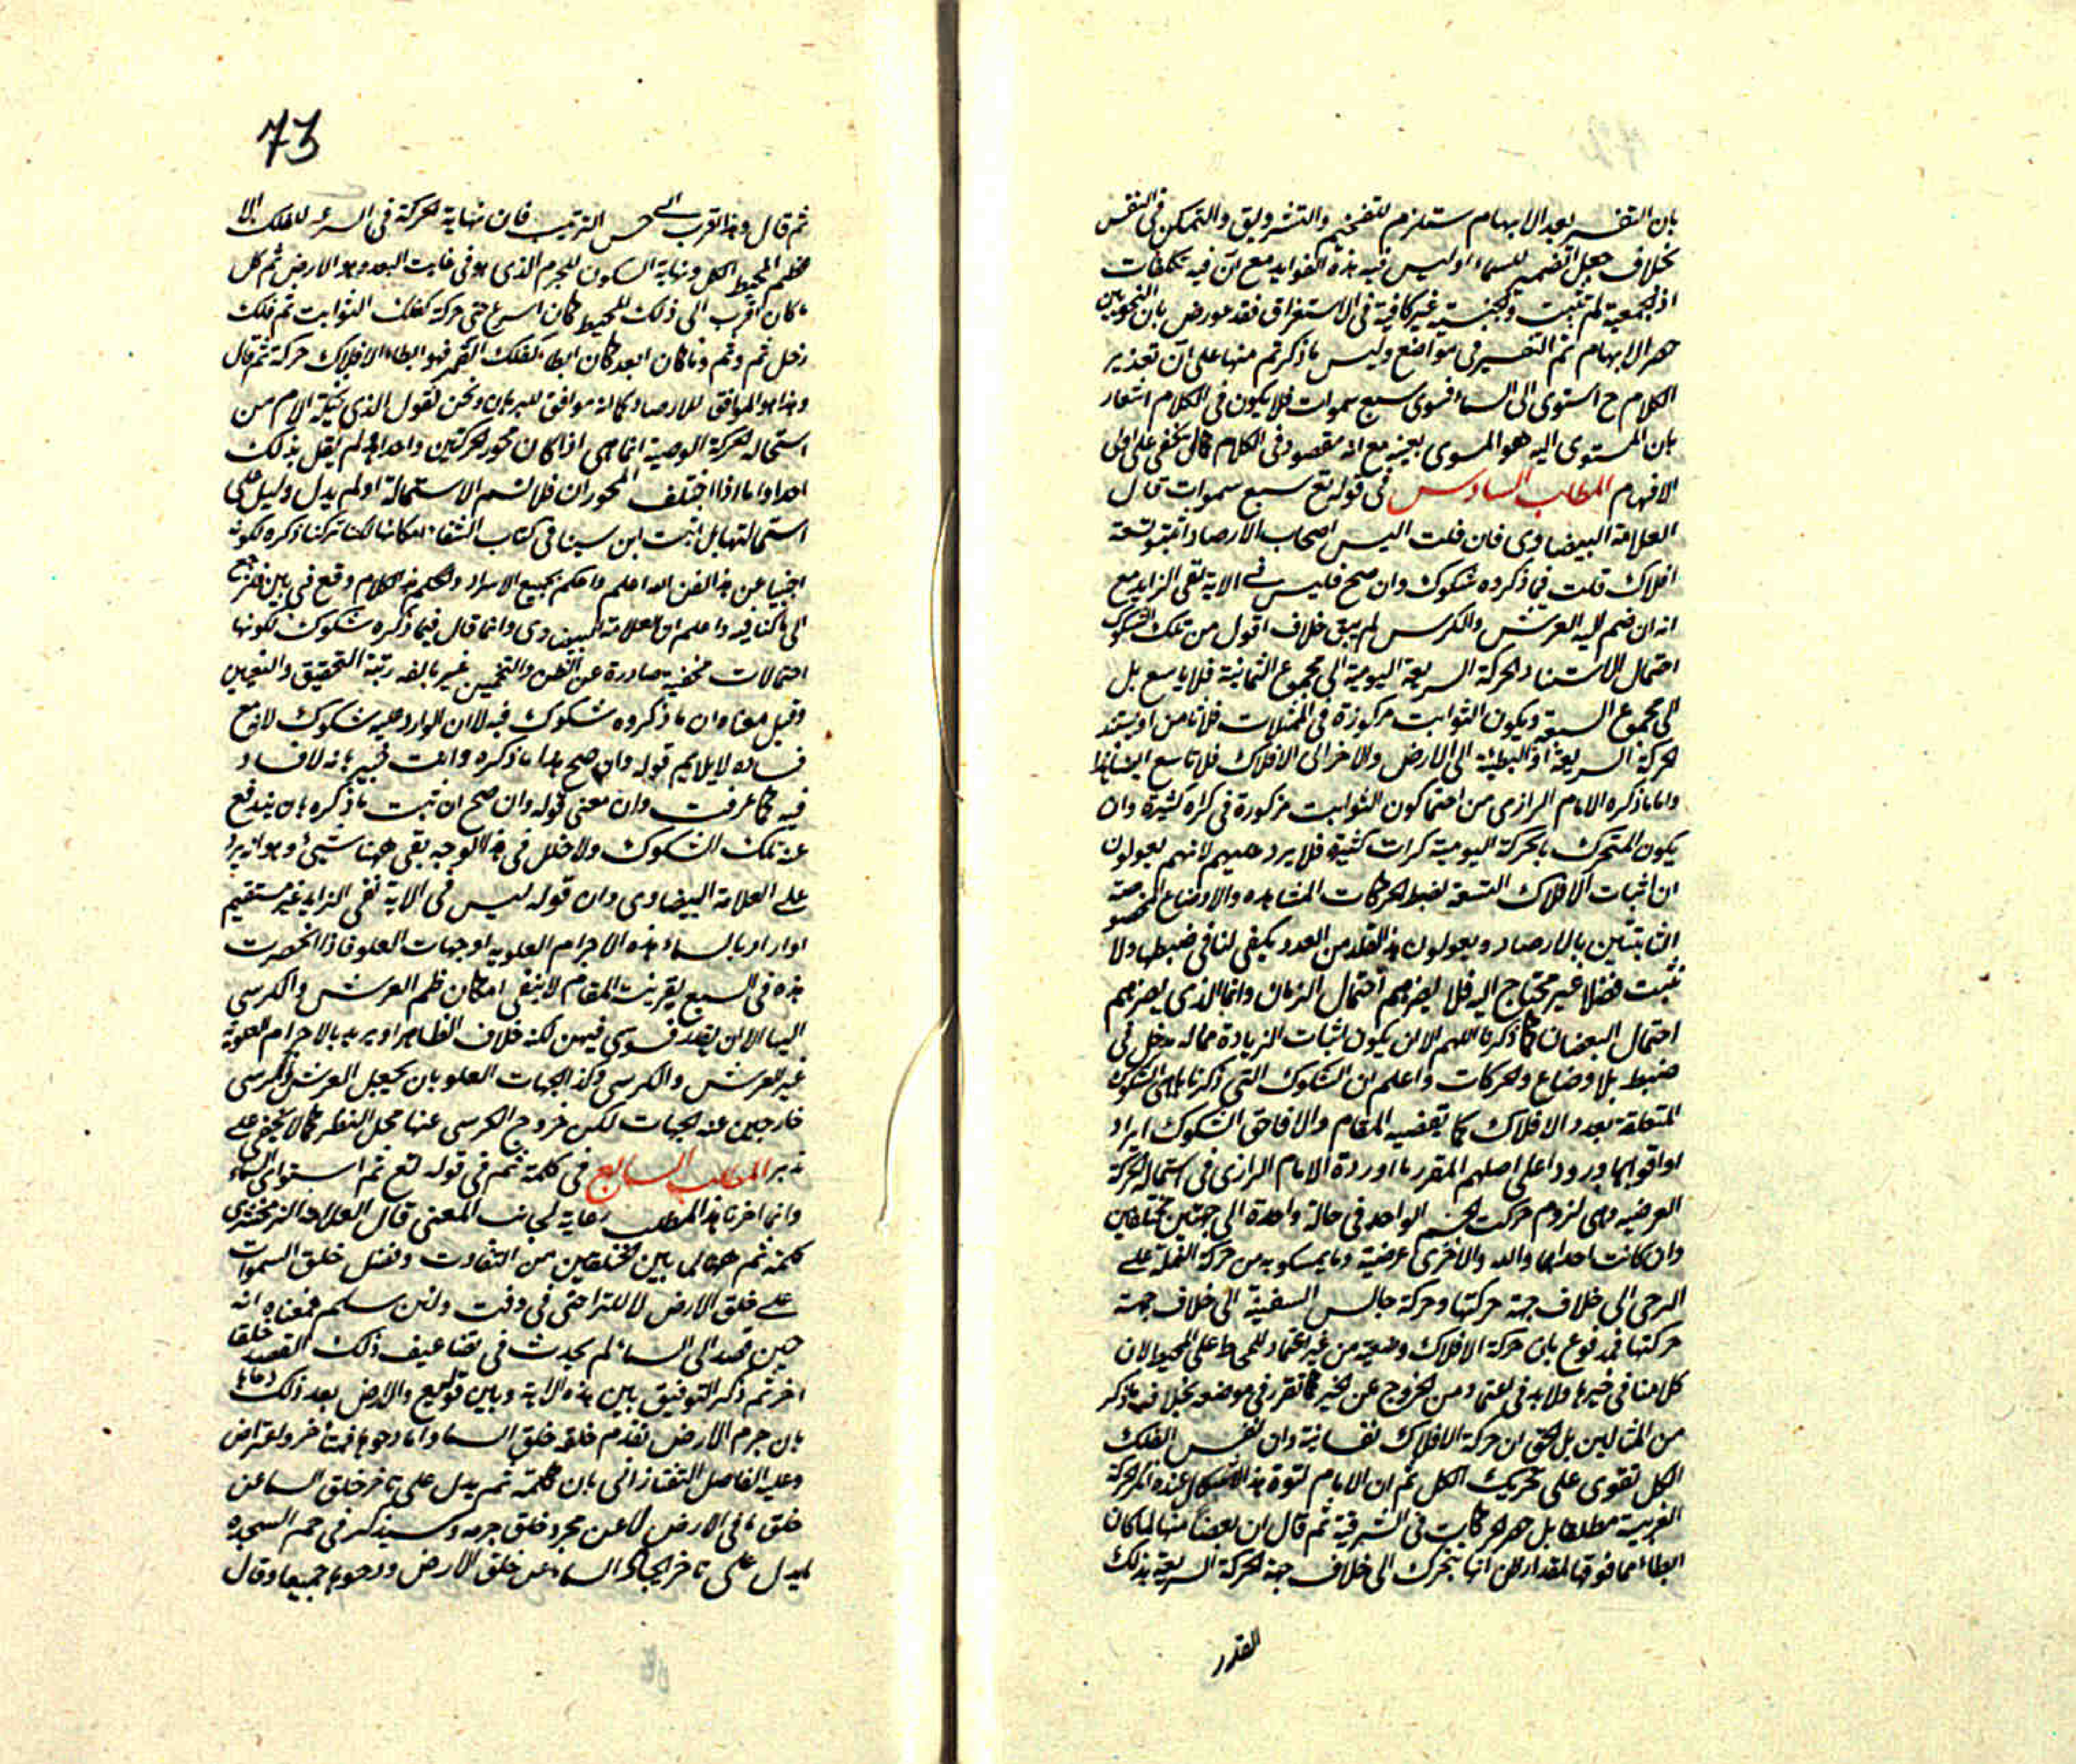 بان التفسير بعد الابهام يستلزم للتفخيم والتشويق والتمكن في النفس
بخلاف جعل الضمير للسماء اوليس فيه هذه الفوايد مع ان فيه تكلفات
اذ الجمعية لم تثبت والجنسية غير كافية في الاستغراق فقد عورض بان النحويين
الابهام ثم التفسير في مواضع وليس ما ذكرتم منها على ان تعذير
الكلام ح استوى الى السماء فسوى سبع سموات فلا يكون في الكلام اشعار
بان المستوى اليه هو المسوى بعينه مع انه مقصود في الكلام كما لا يخفى على اولى
الافهام المطلب السادس في قوله تع سبع سموات قال
العلامة البيضاوى فان قلت اليس اصحاب الارصاد اثبتوا تسعة
افلاك قلت فيما ذكروه شكوك وان صح فليس في الاية نفى الزايد مع
انه ان ضم اليه العرش والكرسى لم يبق خلاف اقول من تلك الشكوك
احتمال الاستناد الحركة السريعة اليومية الى مجموع الثمانية فلا تاسع بل
الى مجموع السبعة ويكون الثوابت مركوزة في الممثلات فلا ثامن او يستند
الحركة السريعة او البطيئة الى الارض والاخرى الى الافلاك فلا تاسع ايضا
واما ما ذكره الامام الرازى من احتمال كون الثوابت مركوزة في كراة كثيرة وان
يكون المتحرك بالحركة اليومية كرات كثيرة فلا يرد عليهم لانهم يعولون
ان اثبات الافلاك التسعة لضبط الحركات المشاهده والاوضاع المخصوصة
الثابتين بالارصاد ويعولون هذا القدر من العدد يكفى لنا في ضبطها ولا
نثبت فضلا غير محتاج اليه فلا يضرهم احتمال الزمان وانما الذى يضرهم
احتمال النقصان كما ذكرنا اللهم الا ان يكون اثبات الزيادة مما له مدخل في
ضبط الاوضاع والحركات واعلم ان الشكوك التى ذكرناها هى الشكوك
المتعلقة بعدد الافلاك كما يقتضيه المقام والا فاحق الشكوك ايراد
او اقواها ورودا على اصلهم المقرر ما اورده الامام الرازى في استحالة الحركة
العرضيه وهى لزوم حركت الجسم الواحد في حالة واحدة الى جهتين مختلفين
وان كانت احداهما والاخرى عرضية وما يمسكو به من حركة النملة على
الرحى الى خلاف جهة حركتها وحركة جالس السفينة الى خلاف جهة
حركتها فمدفوع بان حركة الافلاك وضعية من غير اعتماد للمحاط على المحيط لان
كلامنا في حيزها ولا بد في اعتما ومن الخروج عن الحيز كما تقرر في موضعه بخلاف ما ذكر
من المثالين بل الحق ان حركة الافلاك نفسانية وان نفس الفلك
الكل تقوى على تحريك الكل ثم ان الامام لقوة هذا الاشكال عنده انكر الحركة
الغربية مطلقا بل الحركات في الشرقية ثم قال ان بعضا منها لما كان
ابطاء مما فوقها لمقدار ظن انها يتحرك الى خلاف جهة الحركة السريعة بذلك
القدر
73
ثم قال وهذا اقرب الى حسن الترتيب فان نهاية الحركة في السرعه للفلك الا
عظم المحيط الكل ونهاية السكون للجرم الذى هو في غايت البعد وهو الارض ثم كل
ما كان اقرب الى ذلك المحيط كان اسرع حتى حركة كفلك الثوابت ثم فلك
زحل ثم وثم وما كان ابعد كان ابطاء كفلك القمر فهو ابطاء الافلاك حركة ثم قال
وهذا هو الموافق للارصاد كما انه موافق للبرهان ونحن نقول الذى تخيله الامام من
استحالة الحركة العرضية انما هى اذا كان محور الحركتين واحدا لم يقل بذلك
احد اما اذا اختلف المحوران فلا نسلم الاستحالة او لم يدل دليل على
استحالتها بل اثبت ابن سينا في كتاب الشفاء امكانها لكنا تركنا ذكره لكونه
اجنبيا عن هذا الفن الله اعلم واحكم بجميع الاسرار والحكم هذا الكلام وقع في بين فلنرجع
الى ما كنا فيه واعلم ان العلامة البيضاوى وانما قال فيما ذكره شكوك لكونها
احتمالات مخفية صادرة عن الظن والتخمين غير بالغه رتبة التحقيق واليقين
وقيل معناه ان ما ذكروه شكوك فيه لا ان الوارد عليه شكوك لان مع
فساده لا يلايم قوله وان صح هذا ما ذكره وانت خبير بانه لا فساد
فيه كما عرفت وان معنى قوله وان صح ان ثبت ما ذكره بان يندفع
عنه تلك الشكوك ولا خلل في هذا الوجه بقى ههنا شيئ وهو انه يرد
على العلامة البيضاوى وان قوله ليس في الاية نفى الزايد غير مستقيم
او اراد بالسماء هذه الاجرام العلويه او جهات العلو فاذا انحصرت
هذه في السبع بقرينت المقام لا ينفى امكان ظم العرش والكرسى
اليها الا ان يقدر فسوى فيهن لكنه خلاف الظاهر او يريد بالاجرام العلوية
غير العرش والكرسى وكذا الجهات العلو بان يجعل العرش والكرسى
خارجين عنه الجهات لكن خروج الكرسى عنها محل النظر كما لا يخفى على
تدبر المطلب السابع في كلمة ثم في قوله تع ثم استوى الى السماء
وانما اخرنا هذا المطلب رعاية لجانب المعنى قال العلامة الزمخشرى
كلمة ثم ههنا لما بين الخلقين من التفاوت وفضل خلق السموات
على خلق الارض لا للتراخى في وقت ولئن سلم فمعناه انه
حين قصد الى السماء لم يحدث في تضاعيف ذلك القصد خلقا
اخر ثم ذكر التوفيق بين هذه الاية وبين قوله تع والارض بعد ذلك دحاها
بان جرم الارض تقدم خلقه خلق السماء واما دحوها فمتأخر واعتراض
وعليه الفاضل التفتازانى بان كلمة ثم يدل على تاخر خلق السماء عن
خلق ما في الارض لا عن مجرد خلق جرمه وسيذكر في حم السجده
ما يدل على تاخر ايجاد السماء عن خلق الارض ودحوها جميعا وقال